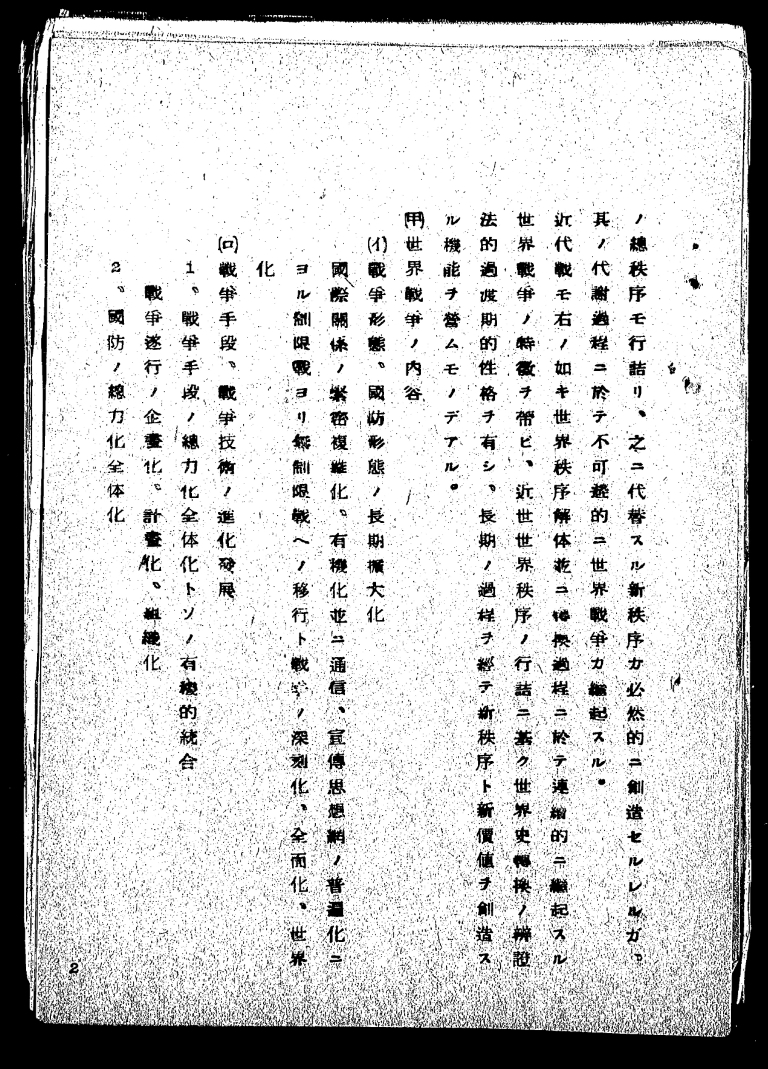 ノ總秩序モ行詰リ、之ニ代替スル新秩序カ必然的ニ創造セルレルガ、
其ノ代謝過程ニ於テ不可避的ニ世界戰争カ繼起スル。
近代戰モ右ノ如キ世界秩序解体並ニ轉換過程ニ於テ連續的ニ繼起スル
世界戰争ノ特徴ヲ帶ビ、近世世界秩序ノ行詰ニ基ク世界史轉換ノ辨證
法的過渡期的性格ヲ有シ、長期ノ過程ヲ經テ新秩序ト新價値ヲ創造ス
ル機能ヲ營ムモノデアル。
(甲)世界戰争ノ内容
(イ)戰争形態、國防形態ノ長期擴大化
國際關係ノ緊密複雜化、有機化並ニ通信、宣傳思想網ノ普遍化ニ
ヨル制限戰ヨリ無制限戰ヘノ移行ト戰争ノ深刻化、全面化、世界
化
(ロ)戰争手段、戰争技術ノ進化發展
1、戰争手段ノ總力化全体化トソノ有機的統合
戰争遂行ノ企畫化、計畫化、組織化
2、國防ノ總力化全体化
2